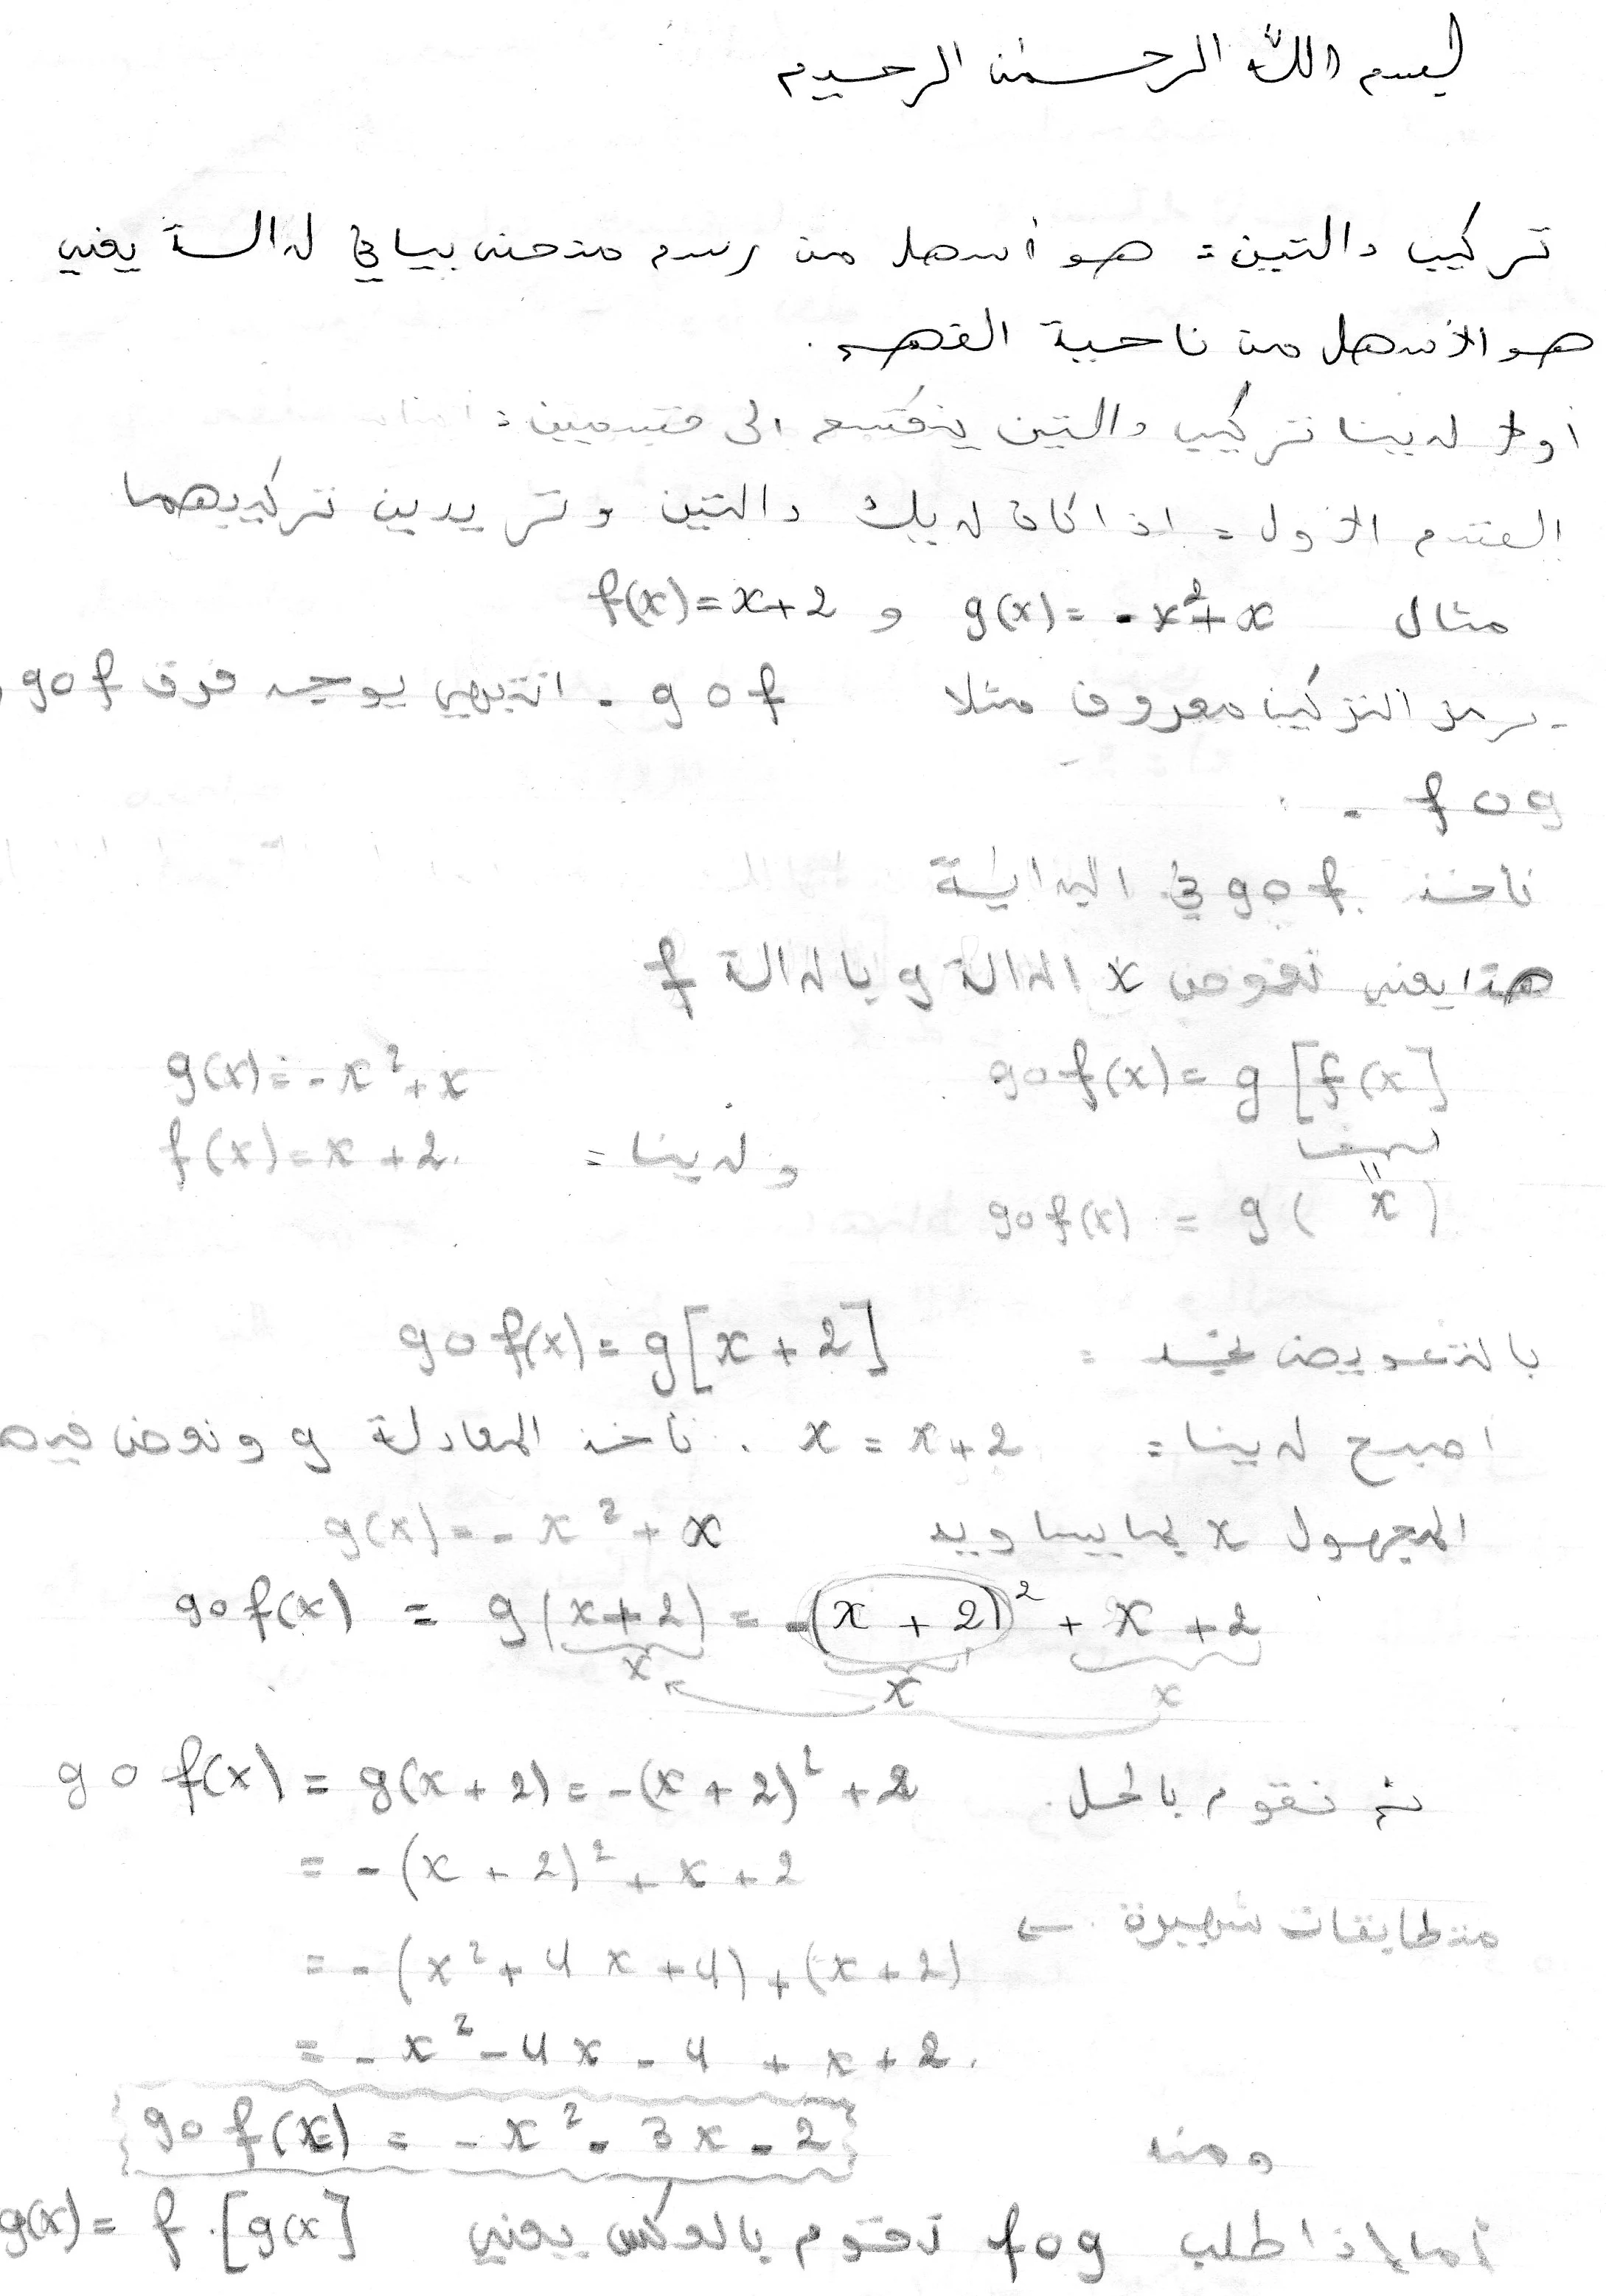 بسم الله الرحمن الرحيم
تركيب دالتين : هو أسهل من رسم منحنى بياني لدالة يعني
هو الأسهل من ناحية الفهم .
أولا لدينا تركيب دالتين ينقسم الى قسمين :
القسم الأول : اذا كان لديك دالتين وتريدين تركيبهما
مثال g(x) = -x²+x و f(x)=x+2
- رمز التركيب معروف مثلا gof . انتبهي يوجد فرق gof
fog .
ناخذ gof في البداية
هذا يعني نعوض x الدالة g بالدالة f
gof(x) = g [f(x] g(x)=-x²+x
ولدينا = f(x)=x+2.
x
gof(x) = g( x )
بالتعويض نجد : gof(x) = g[x+2]
اصبح لدينا = x = x+2 . ناخذ المعادلة g ونعوض فيه
المجهول x بما يساويه g(x) = -x²+x
gof(x) = g(x+2) = -(x+2)² + x+2
x x x
ثم نقوم بالحل . gof(x) = g(x+2) = -(x+2)²+2
= -(x+2)²+x+2
متطابقات شهيرة . ←
= -(x²+4x+4)+(x+2)
= -x²-4x-4 + x+2.
ومنه gof(x) = -x²-3x-2
أما إذا طلب fog نقوم بالعكس يعني g(x) = f.[g(x]